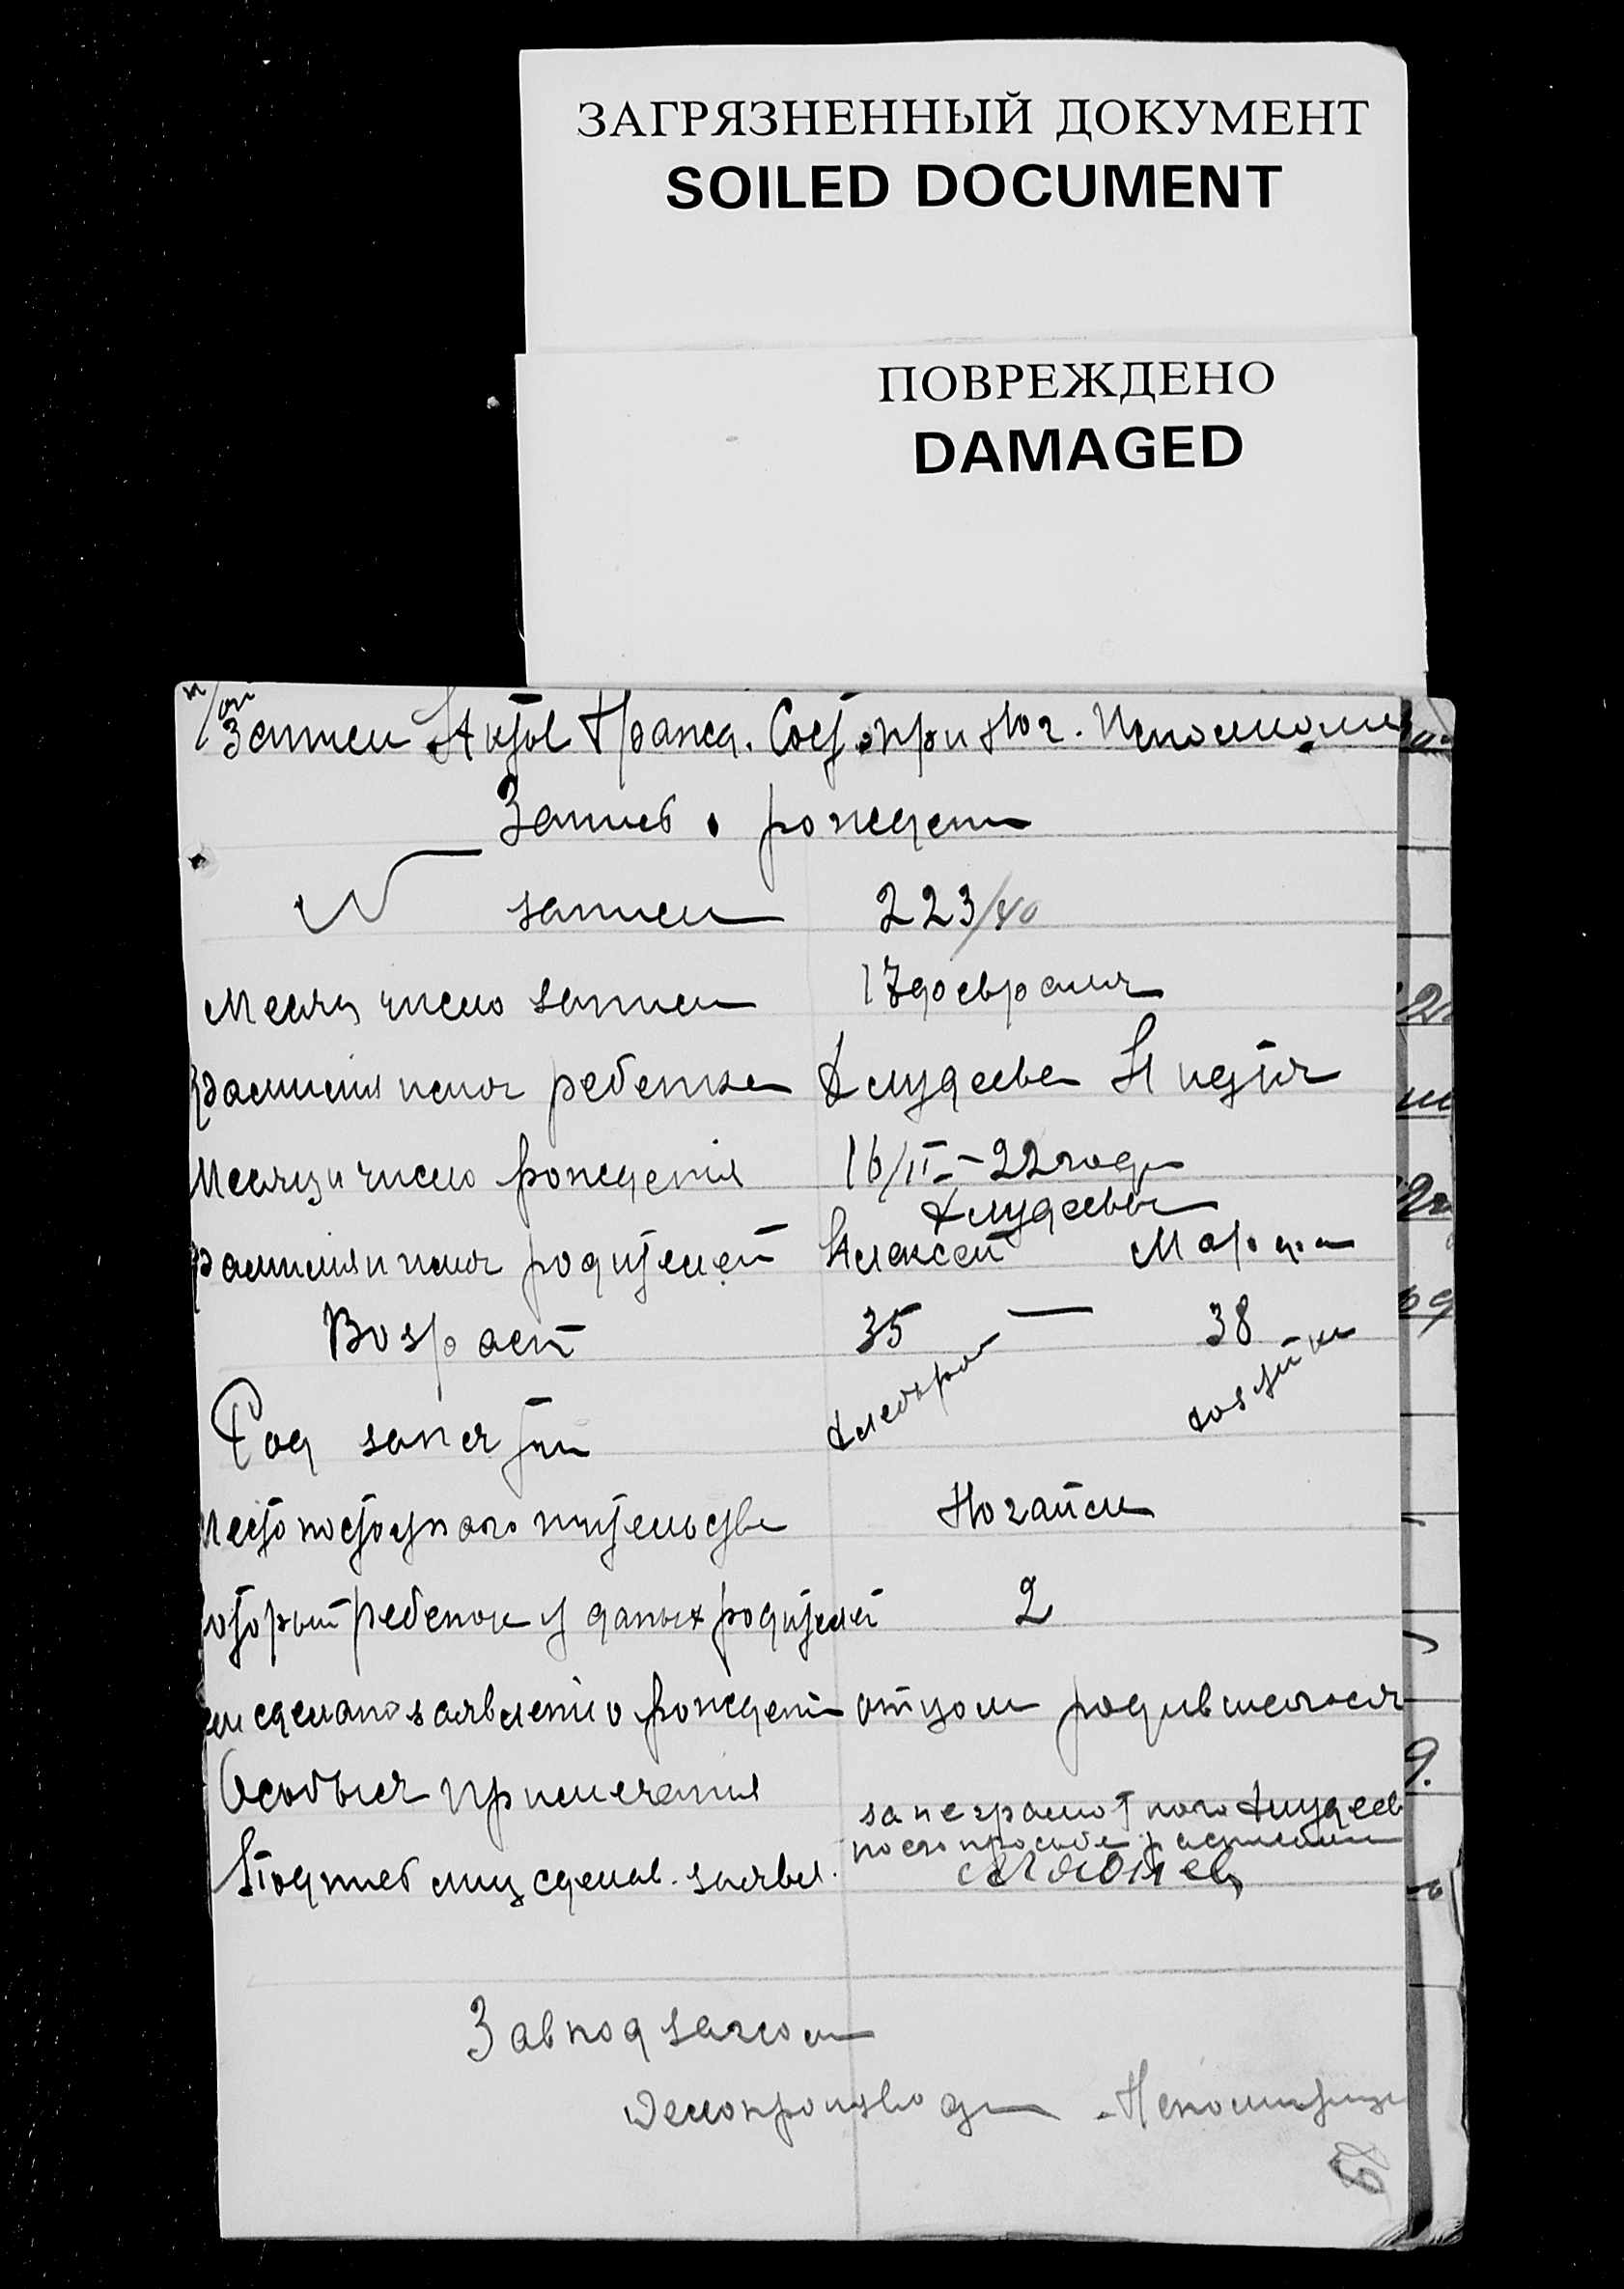 ЗАГРЯЗНЕННЫЙ ДОКУМЕНТ
SOILED DOCUMENT
ПОВРЕЖДЕНО
DAMAGED
п/от
Записи Актов Гражд. Сост. при Ног. Исполком
Запись о рождени
N записи 223/40
Месяц число записи 17 февраля
Фамилия имя ребенка Хлудеева
Месяц и число рождения 16/II-22 года
Хлудеевы
Фамилия и имя родителей Алексей Марфа
Возраст 35 — 38
Род занятии хлебороб хозяйка
Место постоянаго жительства Ногайск
оторый ребенок у даных родителей 2
ем сделано заявлении о рождени отцом родившегося
Особыя примечания
за неграмотного Хлудеев
по его просьбе расписался
Подпись лиц сделав. заявл.
Завподзагсом
Делопроизвод